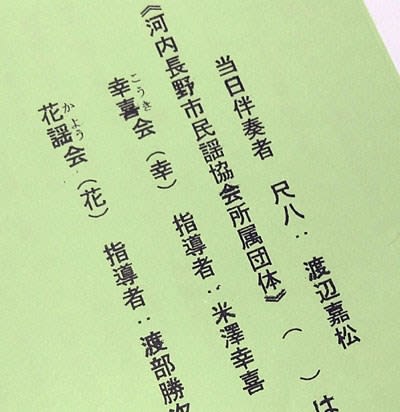 当日伴奏者 尺八：渡辺嘉松
《河内長野市民謡協会所属団体》 ( ) は
幸喜会（幸） 指導者：米澤幸喜
こうき
花謡会（花） 指導者：渡部勝次
かよう